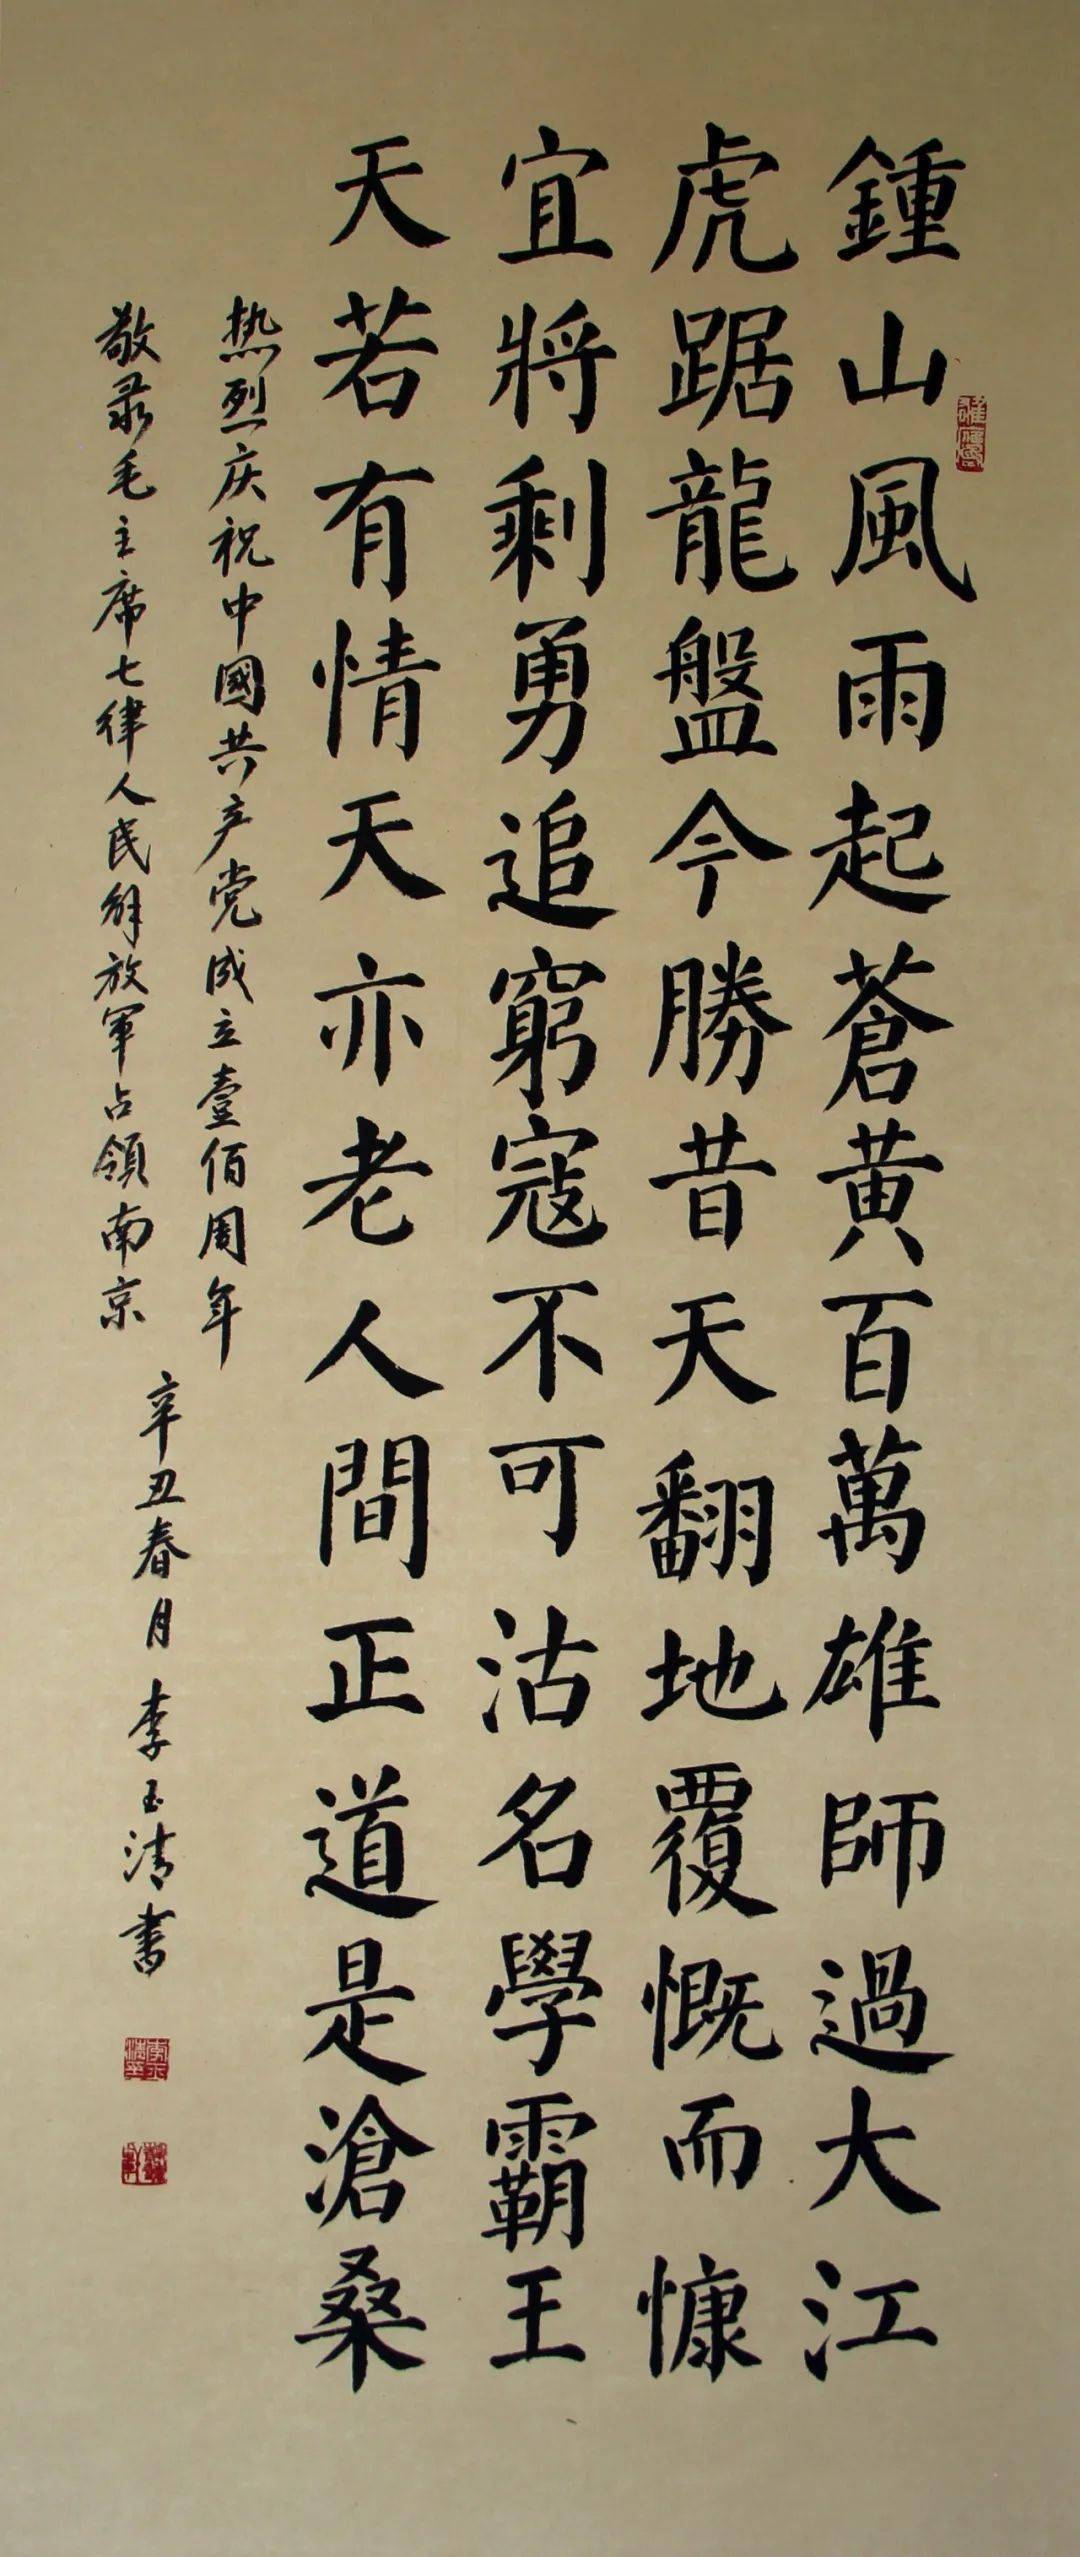 鍾山風雨起蒼黄百萬雄師過大江
虎踞龍盤今勝昔天翻地覆慨而慷
宜將剩勇追窮寇不可沽名學霸王
天若有情天亦老人間正道是滄桑
热烈庆祝中國共产党成立壹佰周年
敬录毛主席七律人民解放軍占領南京
辛丑春月李玉清書